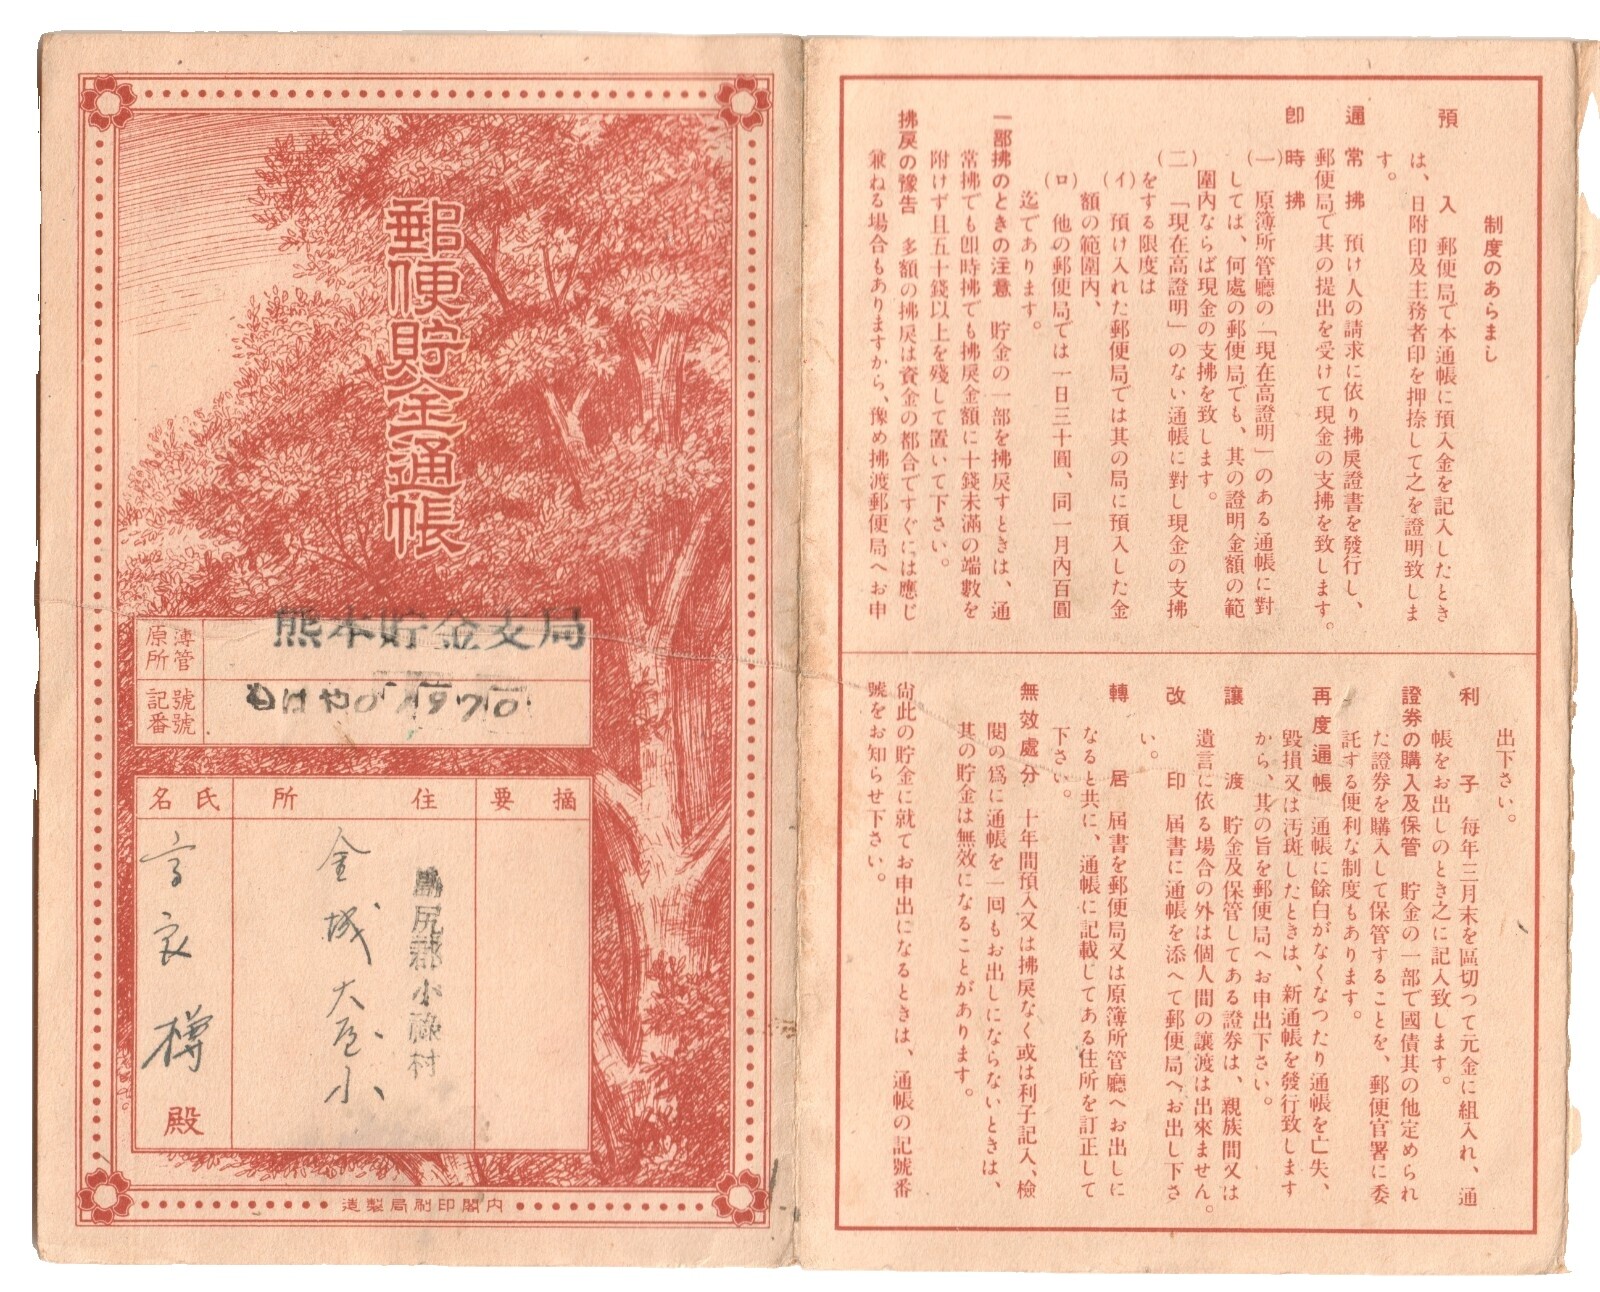 郵便貯金通帳
原簿所管
熊本貯金支局
記號番號
もはや01970
摘要
住所
氏名
島尻郡小祿村
金城大屋小
高良樽
殿
内閣印刷局製造
制度のあらまし
預入 郵便局で本通帳に預入金を記入したとき
は、日附印及主務者印を押捺して之を證明致しま
す。
通常拂 預け人の請求に依り拂戾證書を發行し、
郵便局で其の提出を受けて現金の支拂を致します。
卽時拂
(一) 原簿所管廳の「現在高證明」のある通帳に對
しては、何處の郵便局でも、其の證明金額の範
圍內ならば現金の支拂を致します。
(二) 「現在高證明」のない通帳に對し現金の支拂
をする限度は
(イ) 預け入れた郵便局では其の局に預入した金
額の範圍內、
(ロ) 他の郵便局では一日三十圓、同一月內百圓
迄であります。
一部拂のときの注意 貯金の一部を拂戾すときは、通
常拂でも卽時拂でも拂戾金額に十錢未滿の端數を
附けず且五十錢以上を殘して置いて下さい。
拂戾の豫告 多額の拂戾は資金の都合ですぐには應じ
兼ねる場合もありますから、豫め拂渡郵便局へお申
出下さい。
利子 每年三月末を區切つて元金に組入れ、通
帳をお出しのとき之に記入致します。
證券の購入及保管 貯金の一部で國債其の他定められ
た證券を購入して保管することを、郵便官署に委
託する便利な制度もあります。
再度通帳 通帳に餘白がなくなつたり通帳を亡失、
毀損又は汚斑したときは、新通帳を發行致します
から、其の旨を郵便局へお申出下さい。
讓渡 貯金及保管してある證券は、親族間又は
遺言に依る場合の外は個人間の讓渡は出來ません。
改印 屆書に通帳を添へて郵便局へお出し下さ
い。
轉居 屆書を郵便局又は原簿所管廳へお出しに
なると共に、通帳に記載してある住所を訂正して
下さい。
無效處分 十年間預入又は拂戾なく或は利子記入、檢
閱の爲に通帳を一回もお出しにならないときは、
其の貯金は無效になることがあります。
尙此の貯金に就てお申出になるときは、通帳の記號番
號をお知らせ下さい。